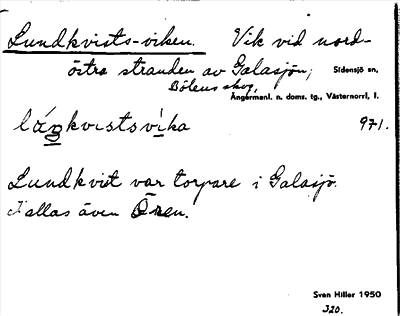 Lundkvists-viken. Vik vid nord-
östra stranden av Galasjön; Sidensjö sn,
Bölens skog,
Ångermanl. n. doms. tg., Västernorrl, l.
971.
Lundkvist var torpare i Galasjö.
Kallas även Ören.
Sven Hiller 1950
320.